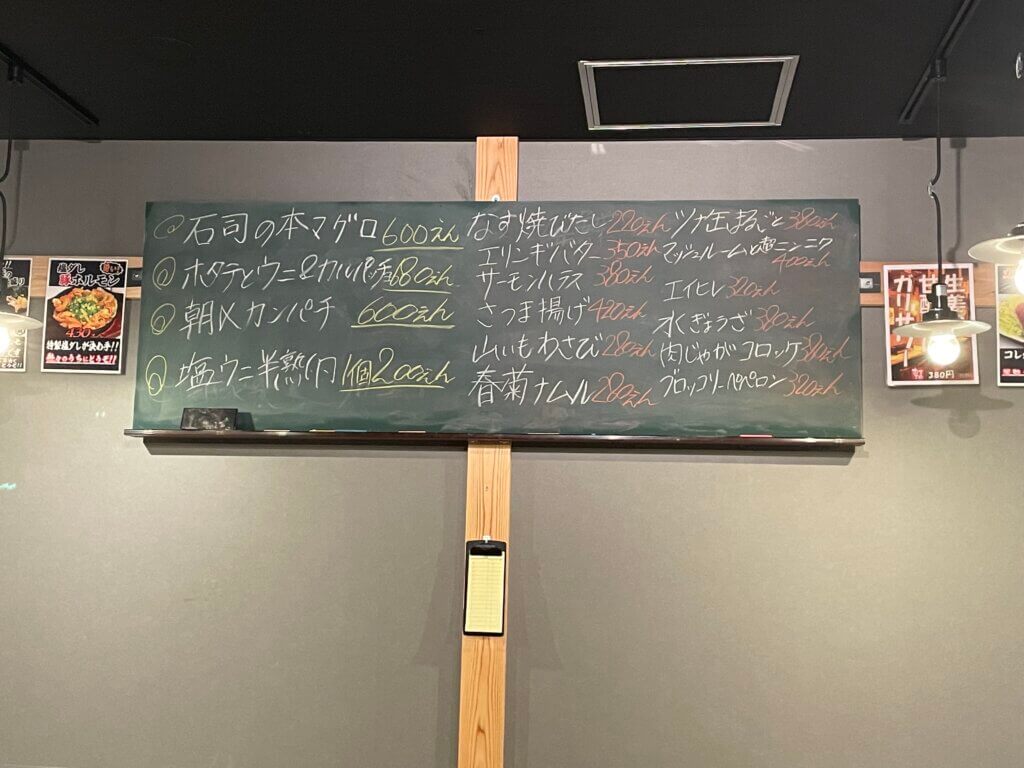 石司の本マグロ 600えん
ホタテとウニ&カルパッチョ 680えん
朝〆カンパチ 600えん
塩ウニ半熟 1個 200えん
なす焼びたし 220えん
エリンギバター 350えん
サーモンハラス 380えん
さつま揚げ 420えん
山いもわさび 280えん
春菊ナムル 280えん
ツナ缶まるごと 380えん
マッシュルームと ニンニク
400えん
エイヒレ 320えん
水ぎょうざ 380えん
肉じゃがコロッケ
ブロッコリーペペロン 320えん
塩ダレ
豚ホルモン
特製塩ダレが決め手!!
熱々のうちにどうぞ!!
380円